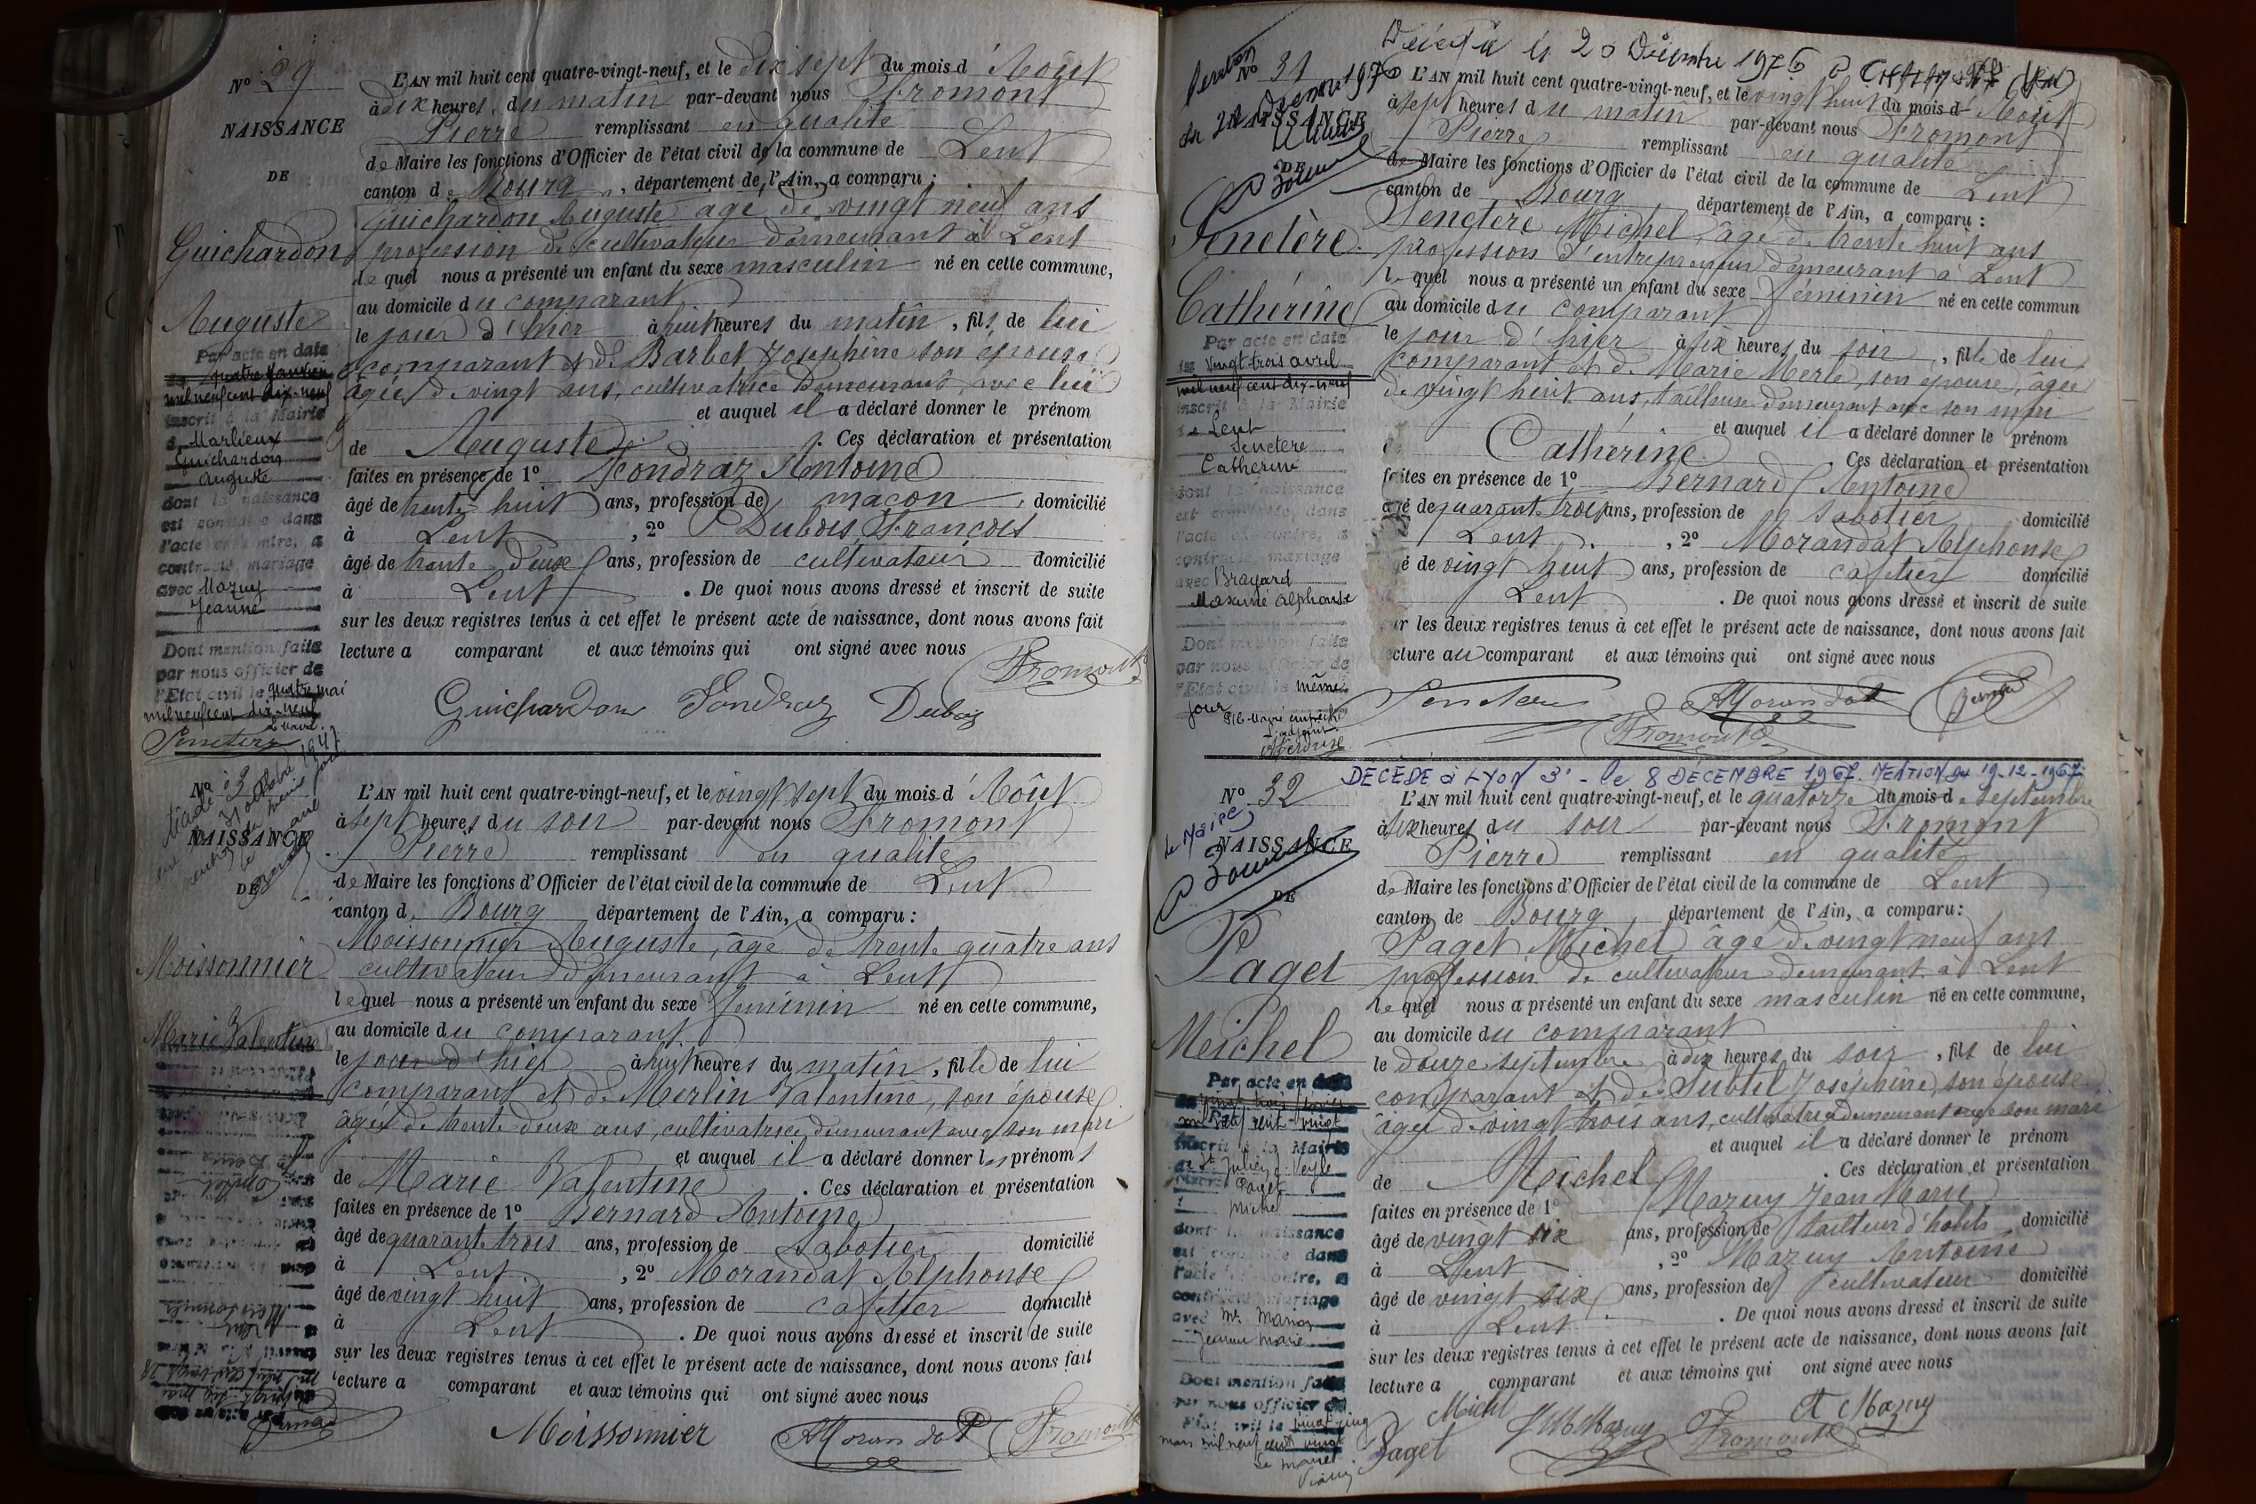 Nº 29
NAISSANCE
DE
Guichardon
Auguste
L'AN mil huit cent quatre-vingt-neuf, et le dix sept du mois d'Août
à dix heures du matin par-devant nous Fromont
Pierre remplissant en qualité
de Maire les fonctions d'Officier de l'état civil de la commune de Lent
canton de Bourg, département de l'Ain, a comparu :
Guichardon Auguste âgé de vingt neuf ans
profession de cultivateur demeurant à Lent
lequel nous a présenté un enfant du sexe masculin né en cette commune,
au domicile du comparant
le jour d'hier à huit heures du matin, fils de lui
comparant et de Barbet Joséphine son épouse
âgée de vingt ans, cultivatrice Demeurant avec lui
et auquel il a déclaré donner le prénom
de Auguste. Ces déclaration et présentation
faites en présence de 1º Fondraz Antoine
âgé de trente huit ans, profession de maçon, domicilié
à Lent, 2º Dubois François
âgé de trente deux ans, profession de cultivateur domicilié
à Lent. De quoi nous avons dressé et inscrit de suite
sur les deux registres tenus à cet effet le présent acte de naissance, dont nous avons fait
lecture a comparant et aux témoins qui ont signé avec nous
Fromont
Guichardon Fondraz Dubois
Par acte en date
mil neuf cent dix-neuf
inscrit à la Mairie
de Marlieux
Guichardon
Auguste
dont la naissance
est constatée dans
l'acte ci-contre, a
contracté mariage
avec Mazuy
Jeanne
Dont mention faite
par nous officier de
l'Etat civil le quatre mai
mil neuf cent dix-neuf
NAISSANCE
DE
Moissonnier
Marie Valentine
L'AN mil huit cent quatre-vingt-neuf, et le vingt sept du mois d'Août
à sept heures du soir par-devant nous Fromont
Pierre remplissant en qualité
de Maire les fonctions d'Officier de l'état civil de la commune de Lent
canton de Bourg département de l'Ain, a comparu :
Moissonnier Auguste, âgé de trente quatre ans
cultivateur demeurant à Lent
lequel nous a présenté un enfant du sexe féminin né en cette commune,
au domicile du comparant
le jour d'hier à huit heures du matin, fille de lui
comparant et de Merlin Valentine, son épouse
âgée de trente deux ans, cultivatrice, demeurant avec son mari
et auquel il a déclaré donner les prénoms
de Marie Valentine. Ces déclaration et présentation
faites en présence de 1º Bernard Antoine
âgé de quarante trois ans, profession de Sabotier domicilié
à Lent, 2º Morandat Alphonse
âgé de vingt huit ans, profession de cafetier domicilié
à Lent. De quoi nous avons dressé et inscrit de suite
sur les deux registres tenus à cet effet le présent acte de naissance, dont nous avons fait
lecture a comparant et aux témoins qui ont signé avec nous
Moissonnier A Morandat Fromont
Bernard
Décédée le 20 Décembre 1976
Nº 31
NAISSANCE
DE
Senetère
Cathérine
L'AN mil huit cent quatre-vingt-neuf, et le vingt huit du mois d'Août
à sept heures du matin par-devant nous Fromont
Pierre remplissant en qualité
de Maire les fonctions d'Officier de l'état civil de la commune de Lent
canton de Bourg département de l'Ain, a comparu :
Senetère Michel, âgé de trente huit ans
profession d'entrepreneur demeurant à Lent
lequel nous a présenté un enfant du sexe féminin né en cette commun
au domicile du comparant
le jour d'hier à six heures du soir, fille de lui
comparant et de Marie Merle, son épouse, âgée
de vingt huit ans, tailleuse demeurant avec son mari
et auquel il a déclaré donner le prénom
de Cathérine Ces déclaration et présentation
faites en présence de 1º Bernard Antoine
âgé de quarante trois ans, profession de sabotier domicilié
Lent, 2º Morandat Alphonse
âgé de vingt huit ans, profession de cafetier domicilié
Lent. De quoi nous avons dressé et inscrit de suite
sur les deux registres tenus à cet effet le présent acte de naissance, dont nous avons fait
lecture au comparant et aux témoins qui ont signé avec nous
Senetère A Morandat Bernard
Fromont
Par acte en date
du vingt trois avril
mil neuf cent dix-neuf
inscrit à la Mairie
de Lent
Senetere
Catherine
dont la naissance
est constatée dans
l'acte ci-contre, a
contracté mariage
avec Brayard
Maxime Alphonse
Dont mention faite
par nous officier de
l'Etat civil le même
jour
DÉCÉDÉ à LYON 3e - le 8 DÉCEMBRE 1967. MENTION du 19-12-1967
Nº 32
Le Maire
NAISSANCE
DE
Paget
Michel
L'AN mil huit cent quatre-vingt-neuf, et le quatorze du mois de Septembre
à six heures du soir par-devant nous Fromont
Pierre remplissant en qualité
de Maire les fonctions d'Officier de l'état civil de la commune de Lent
canton de Bourg, département de l'Ain, a comparu :
Paget Michel âgé de vingt neuf ans
profession de cultivateur demeurant à Lent
lequel nous a présenté un enfant du sexe masculin né en cette commune,
au domicile du comparant
le douze septembre à dix heures du soir, fils de lui
comparant et de Subtil Joséphine, son épouse
âgée de vingt trois ans, cultivatrice demeurant avec son mari
et auquel il a déclaré donner le prénom
de Michel. Ces déclaration et présentation
faites en présence de 1º Mazuy Jean Marie
âgé de vingt six ans, profession de tailleur d'habits domicilié
à Lent, 2º Mazuy Antoine
âgé de vingt six ans, profession de cultivateur domicilié
à Lent. De quoi nous avons dressé et inscrit de suite
sur les deux registres tenus à cet effet le présent acte de naissance, dont nous avons fait
lecture a comparant et aux témoins qui ont signé avec nous
Michel Paget J M Mazuy Fromont A Mazuy
Par acte en date
inscrit à la Mairie
de St Julien s. Veyle
Paget
Michel
dont la naissance
est constatée dans
l'acte ci-contre, a
contracté mariage
avec
Jeanne Marie
Dont mention faite
par nous officier de
l'Etat civil le vingt cinq
mars mil neuf cent vingt
Le Maire